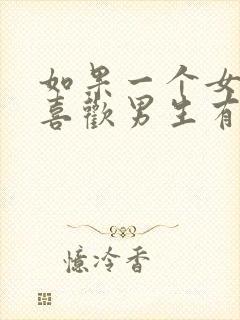 如果一个女
喜歡男生有
憶冷香